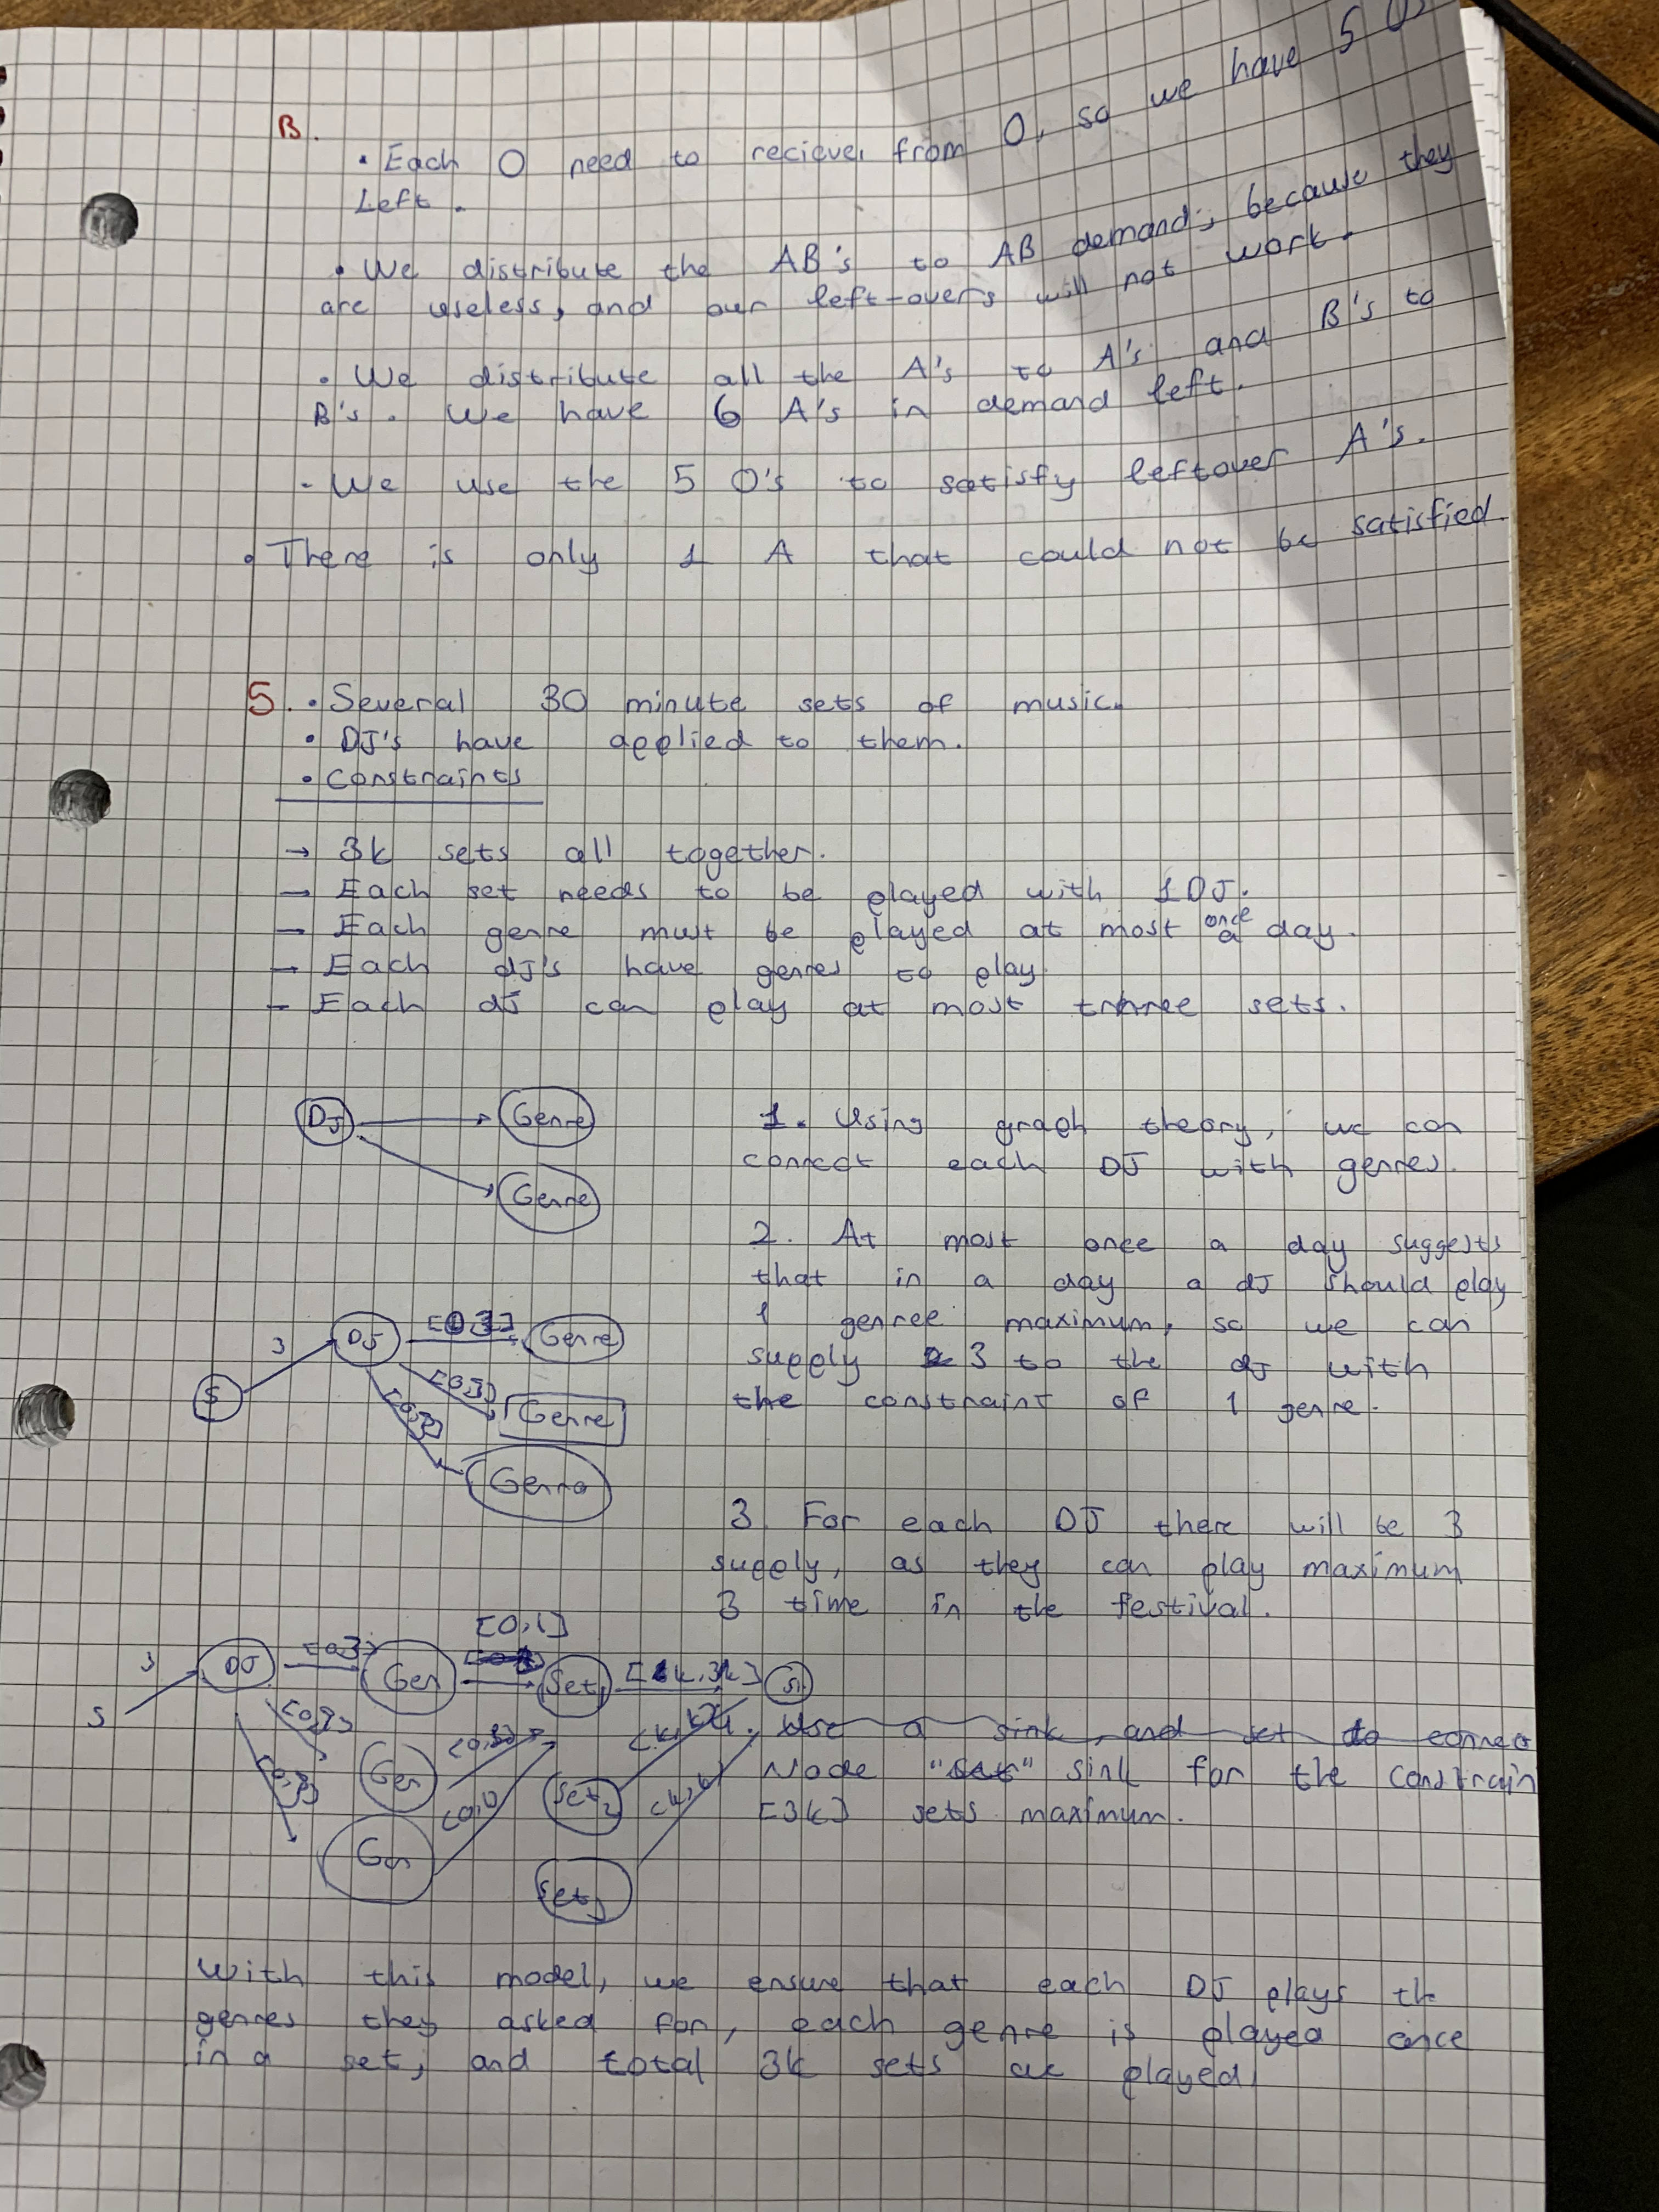 B.
• Each O need to reciever from O, so we have 5 O's
Left.
• We distribute the AB's to AB demand; because they
are useless, and our left-overs will not work.
• We distribute all the A's to A's and B's to
B's. We have 6 A's in demand left.
- We use the 5 O's to satisfy leftover A's.
• There is only 1 A that could not be satisfied.
5. • Several 30 minute sets of music.
• DJ's have applied to them.
• constraints
→ 3k sets all together.
→ Each set needs to be played with 1 DJ.
→ Each genre must be played at most once a day.
→ Each dJ's have genres to play.
→ Each dJ can play at most three sets.
DJ Genre
Genre
1. Using graph theory, we can
connect each DJ with genres.
2. At most once a day suggests
that in a day a dJ should play
1 genree maximum, so we can
supply 3 to the dJ with
the constraint of 1 genre.
S 3 DJ Genre
[0,3] Genre
Genre
3. For each DJ there will be 3
supply, as they can play maximum
3 time in the festival.
[0,1]
S 3 DJ [0,3] Gen Set1 [k,3k] Si
4. Use a sink, and set to connect
Node "Set" sink for the constrain
[3k] sets maximum.
[0,3] Gen Set2
[0,3] Gen [0,1] Set3
With this model, we ensure that each DJ plays the
genres they asked for, each genre is played once
in a set, and total 3k sets are played.